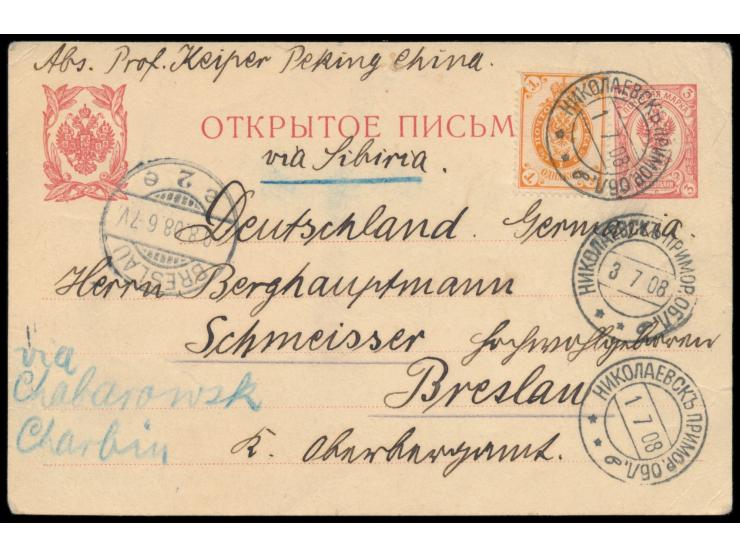 Abs. Prof. Keiper Peking China.
ОТКРЫТОЕ ПИСЬМ
via Sibiria.
НИКОЛАЕВСКЪ ПРИМОР. ОБЛ.
1 7 08
3
Deutschland. Germania.
BRESLAU
08.6-7V
e 2 e
НИКОЛАЕВСКЪ ПРИМОР. ОБЛ.
3 7 08
Herrn Berghauptmann
Schmeisser Hochwohlgeboren
via
Chabarowsk
Charbin
Breslau
НИКОЛАЕВСКЪ ПРИМОР. ОБЛ.
1 7 08
K. Oberbergamt.